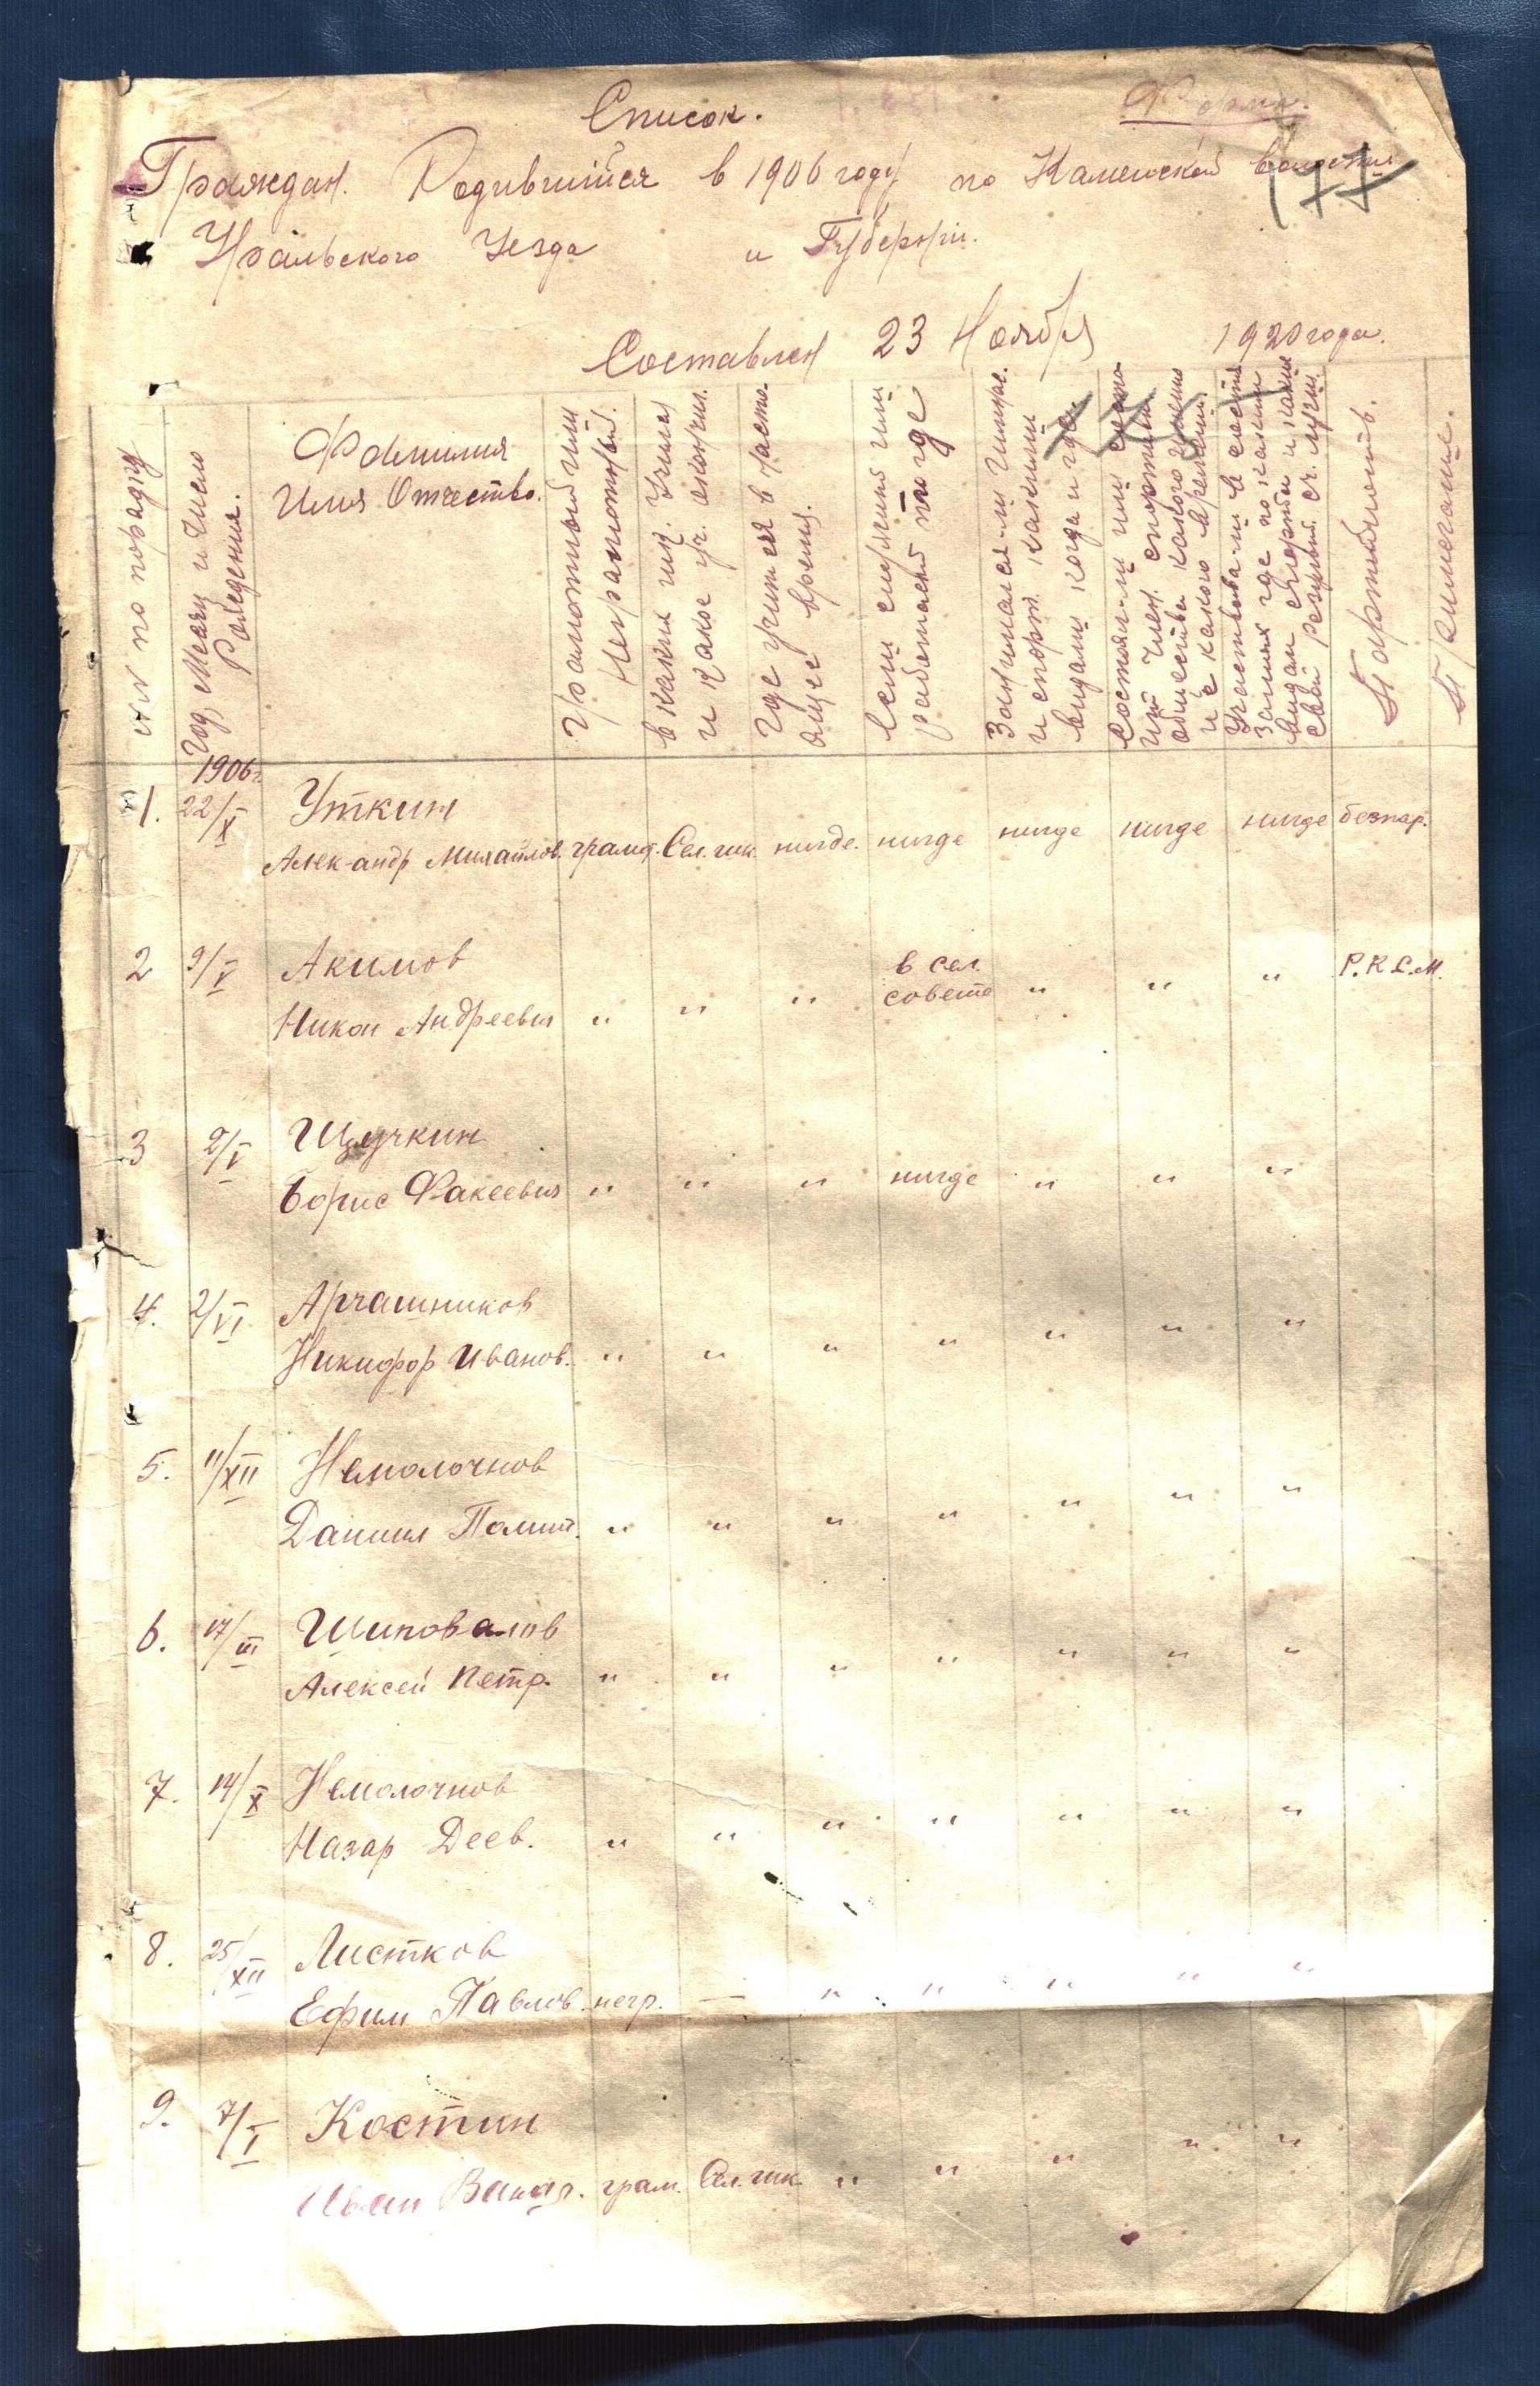 Список.
Форма.
Граждан. Родившийся в 1906 году по Каменской волости
177
Уральского Уезда и Губернии.
Составлен 23 Ноября 1920 года.
№№ по порядку
Год, Месяц и Число Рождения.
Фамилия
Имя Отчество.
Грамотный или
Неграмотный.
в каких шк. Учился
и какое уч. окончил.
Где учится в насто-
ящее время.
Если служит или
работает то где
Занимался-ли гимнас.
и спорт. какими
видами когда и где.
Состоял-ли или состо-
ит член. спортивн.
общества какого именно
и с какого времени.
Участвовал-ли в состя-
заниях где по каким
видам спорта и какие
свои результ. сч. лучш.
Партийность.
Примечание.
1906 г.
1. 22/X Уткин
Алек-андр Михайлов. грамо. Сел. шк. нигде. нигде нигде нигде нигде безпар.
2 9/V Акимов в сел. Р.К.С.М.
совете " " "
Никон Андреевич " " "
3 2/V Щучкин
Борис Факеевич " " " нигде " " "
4. 2/VI Арчашников
Никифор Иванов. " " " " " " "
5. 11/XII Немолочнов
Даниил Полит. " " " " " " "
6. 17/III Шиповалов
Алексей Петр. " " " " " " "
7. 14/X Немолочнов
Назар Деев. " " " " " " "
8. 25/XII Листков
Ефим Павлов. негр. — " " " " "
9. 7/I Костин
Иван грам. Сел. шк. " " " " "